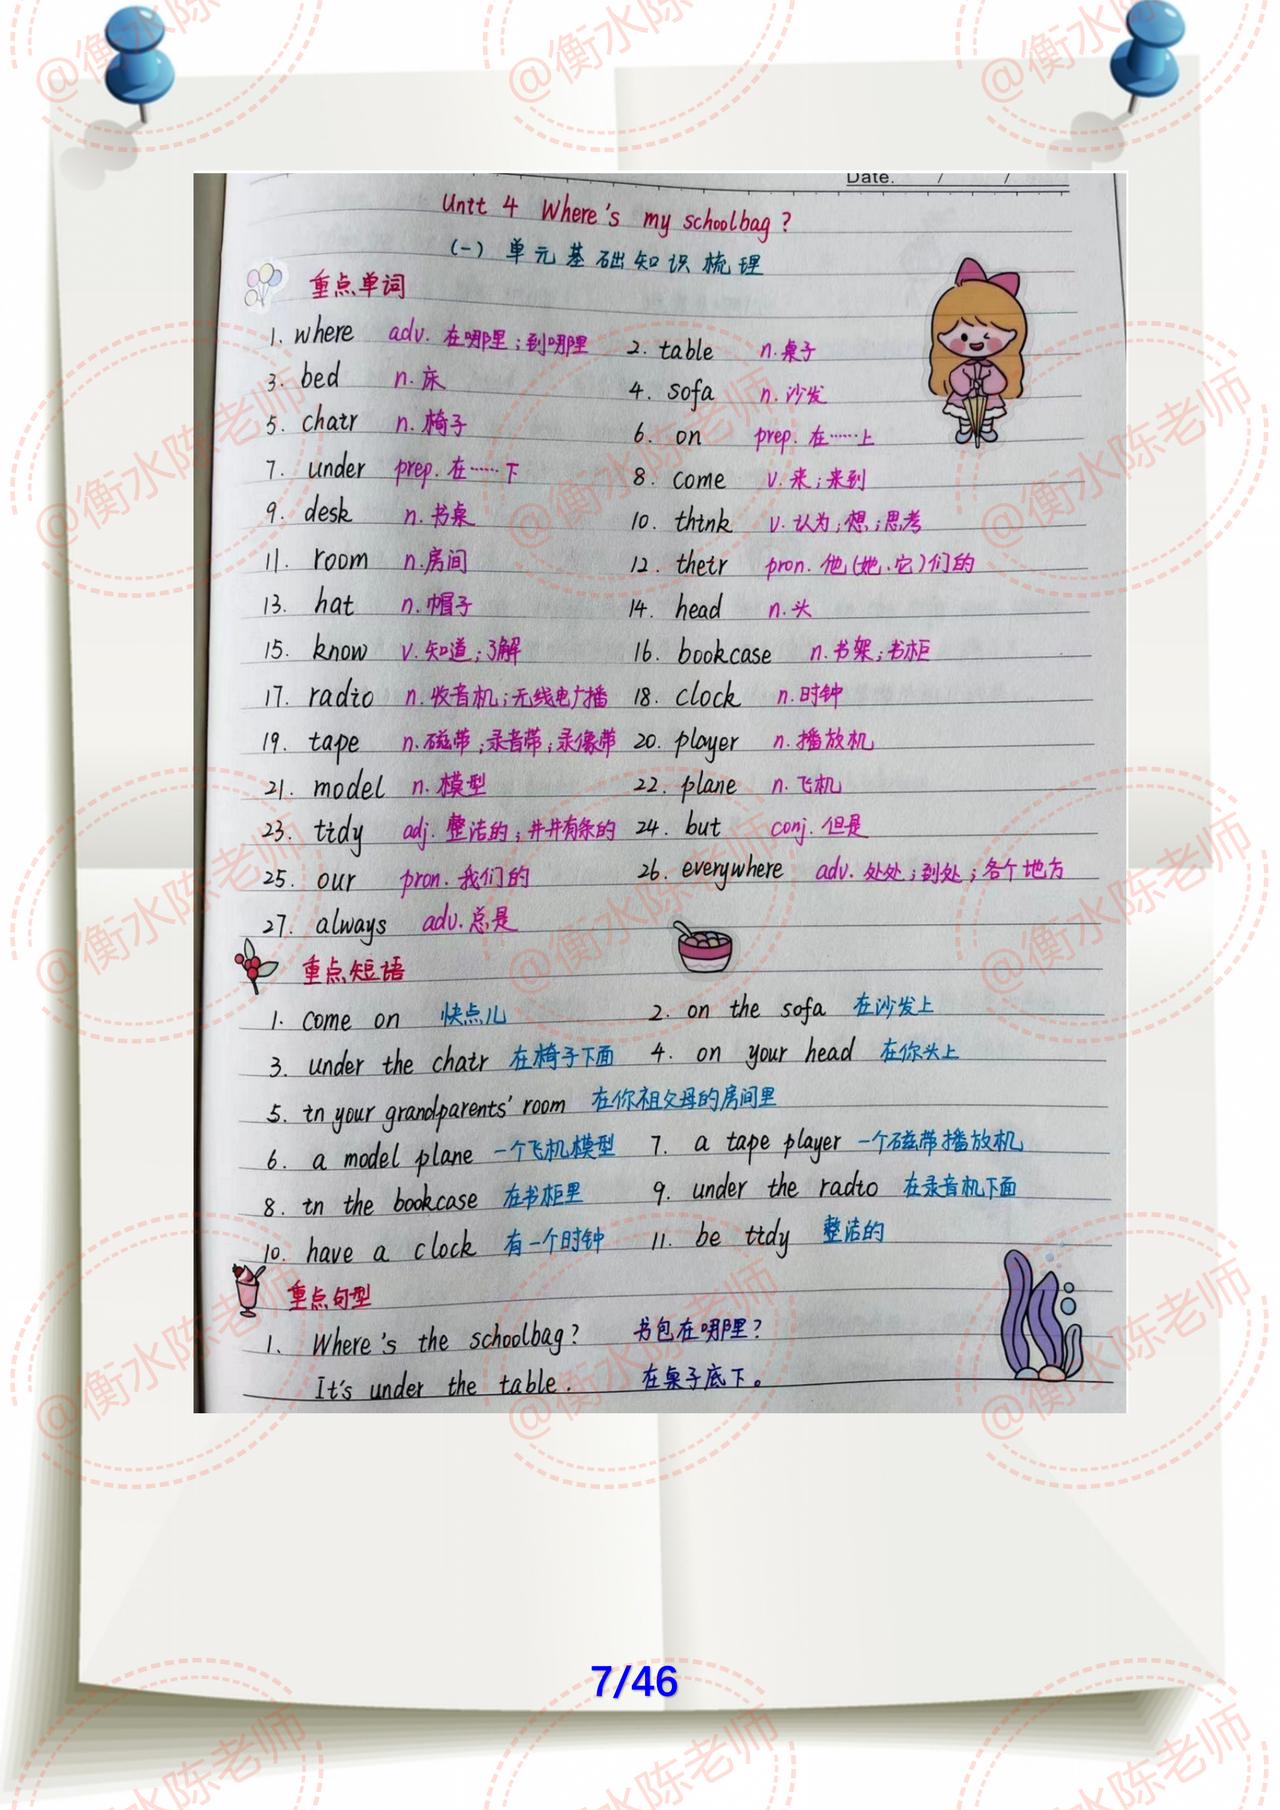 Date. / /
Unit 4 Where's my schoolbag?
(一) 单元基础知识梳理
重点单词
1. where adv. 在哪里;到哪里 2. table n. 桌子
3. bed n. 床 4. sofa n. 沙发
5. chair n. 椅子 6. on prep. 在……上
7. under prep. 在……下 8. come v. 来;来到
9. desk n. 书桌 10. think v. 认为;想;思考
11. room n. 房间 12. their pron. 他(她、它)们的
13. hat n. 帽子 14. head n. 头
15. know v. 知道;了解 16. bookcase n. 书架;书柜
17. radio n. 收音机;无线电广播 18. clock n. 时钟
19. tape n. 磁带;录音带;录像带 20. player n. 播放机
21. model n. 模型 22. plane n. 飞机
23. tidy adj. 整洁的;井井有条的 24. but conj. 但是
25. our pron. 我们的 26. everywhere adv. 处处;到处;各个地方
27. always adv. 总是
重点短语
1. come on 快点儿 2. on the sofa 在沙发上
3. under the chair 在椅子下面 4. on your head 在你头上
5. in your grandparents' room 在你祖父母的房间里
6. a model plane 一个飞机模型 7. a tape player 一个磁带播放机
8. in the bookcase 在书柜里 9. under the radio 在录音机下面
10. have a clock 有一个时钟 11. be tidy 整洁的
重点句型
1. Where's the schoolbag? 书包在哪里?
It's under the table. 在桌子底下。
7/46
@衡水陈老师